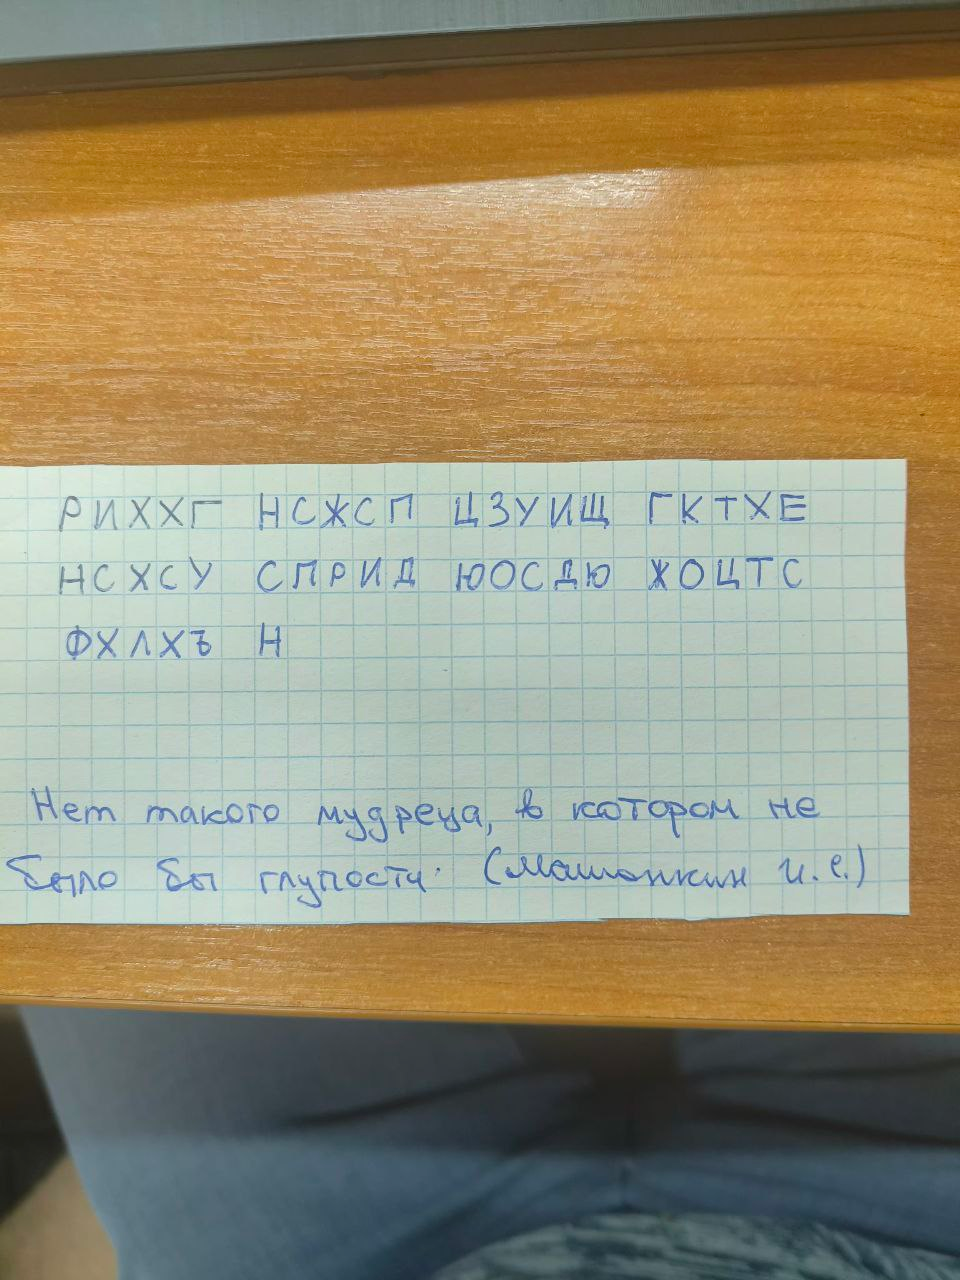 РИХХГ НСЖСП ЦЗУИЩ ГКТХЕ
НСХСУ СПРИД ЮОСДЮ ЖОЦТС
ФХЛХЪ Н
Нет такого мудреца, в котором не
было бы глупости. (Машонкин И.Е.)